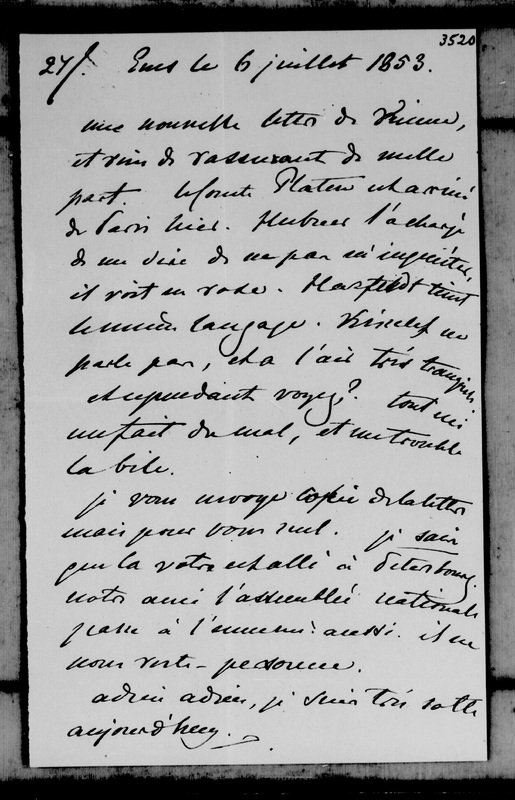 3520
27/. Ems le 6 juillet 1853.
une nouvelle lettre de Vienne,
et rien de rassurant de nulle
part. le Comte Platen est arrivé
de Paris hier. Hubner l'a chargé
de me dire de ne pas m'inquiéter,
il voit en rose. Hatzfeldt tient
le même langage. Kisseleff ne
parle pas, et a l'air très tranquille.
et cependant voyez? tout ceci
me fait du mal, et me trouble
la bile.
je vous envoye copie de la lettre
mais pour vous seul. je sais
que la votre est allé à Petersbourg.
notre ami l'assemblée nationale
passe à l'ennemi aussi. il ne
nous reste personne.
adieu adieu, je suis très sotte
aujourd'huy.